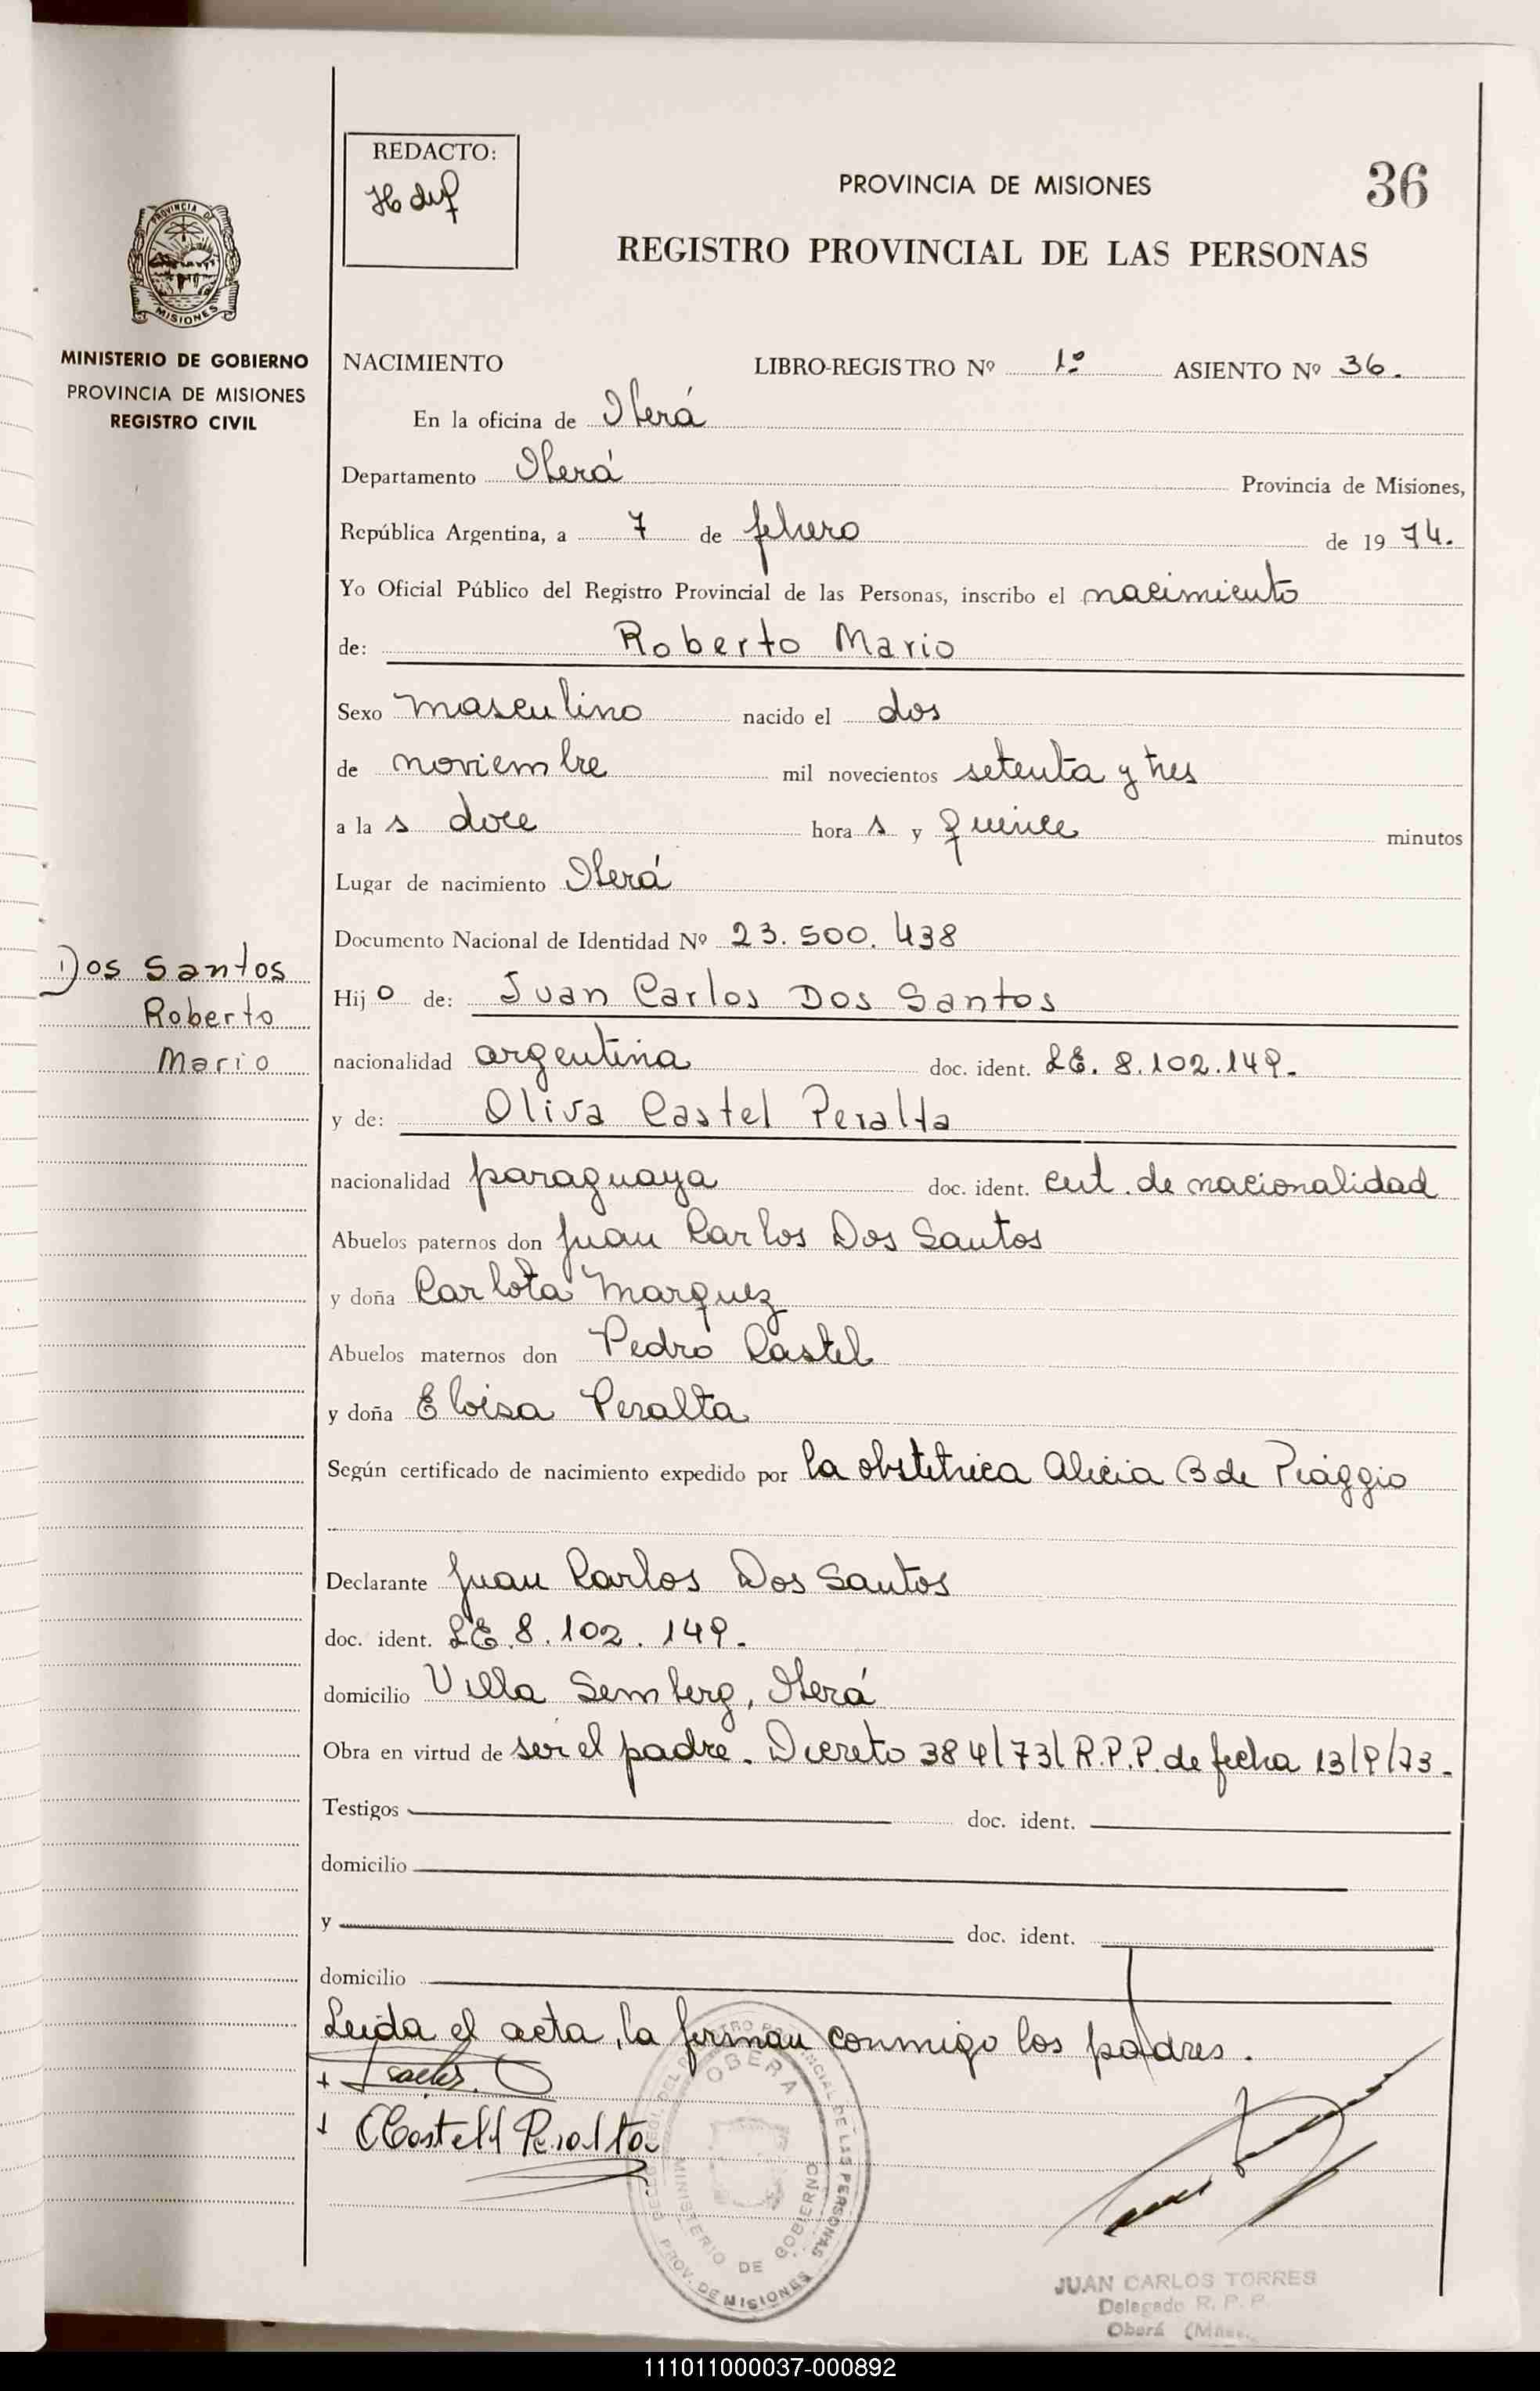 REDACTO:
PROVINCIA DE MISIONES
36
REGISTRO PROVINCIAL DE LAS PERSONAS
PROVINCIA DE
MISIONES
MINISTERIO DE GOBIERNO
PROVINCIA DE MISIONES
REGISTRO CIVIL
NACIMIENTO LIBRO-REGISTRO Nº 1º ASIENTO Nº 36.
En la oficina de Oberá
Departamento Oberá Provincia de Misiones,
República Argentina, a 7 de febrero de 1974.
Yo Oficial Público del Registro Provincial de las Personas, inscribo el nacimiento
de: Roberto Mario
Sexo masculino nacido el dos
de noviembre mil novecientos setenta y tres
a las doce horas y quince minutos
Lugar de nacimiento Oberá
Documento Nacional de Identidad Nº 23.500.438
Dos Santos
Roberto
Mario
Hijo de: Juan Carlos Dos Santos
nacionalidad argentina doc. ident. LE. 8.102.149.
y de: Oliva Castel Peralta
nacionalidad paraguaya doc. ident. cert. de nacionalidad
Abuelos paternos don Juan Carlos Dos Santos
y doña Carlota Marquez
Abuelos maternos don Pedro Castel
y doña Eloisa Peralta
Según certificado de nacimiento expedido por la obstetrica Alicia B de Piaggio
Declarante Juan Carlos Dos Santos
doc. ident. LE. 8.102.149.
domicilio Villa Semberg, Oberá
Obra en virtud de ser el padre. Decreto 384/73/R.P.P. de fecha 13/9/73.
Testigos doc. ident.
domicilio
y doc. ident.
domicilio
Leida el acta, la firman conmigo los padres.
OCastell Peralta
REGISTRO PROVINCIAL DE LAS PERSONAS
OBERA
MINISTERIO DE GOBIERNO
PROV. DE MISIONES
JUAN CARLOS TORRES
Delegado R. P. P.
Oberá (Mnes.
111011000037-000892